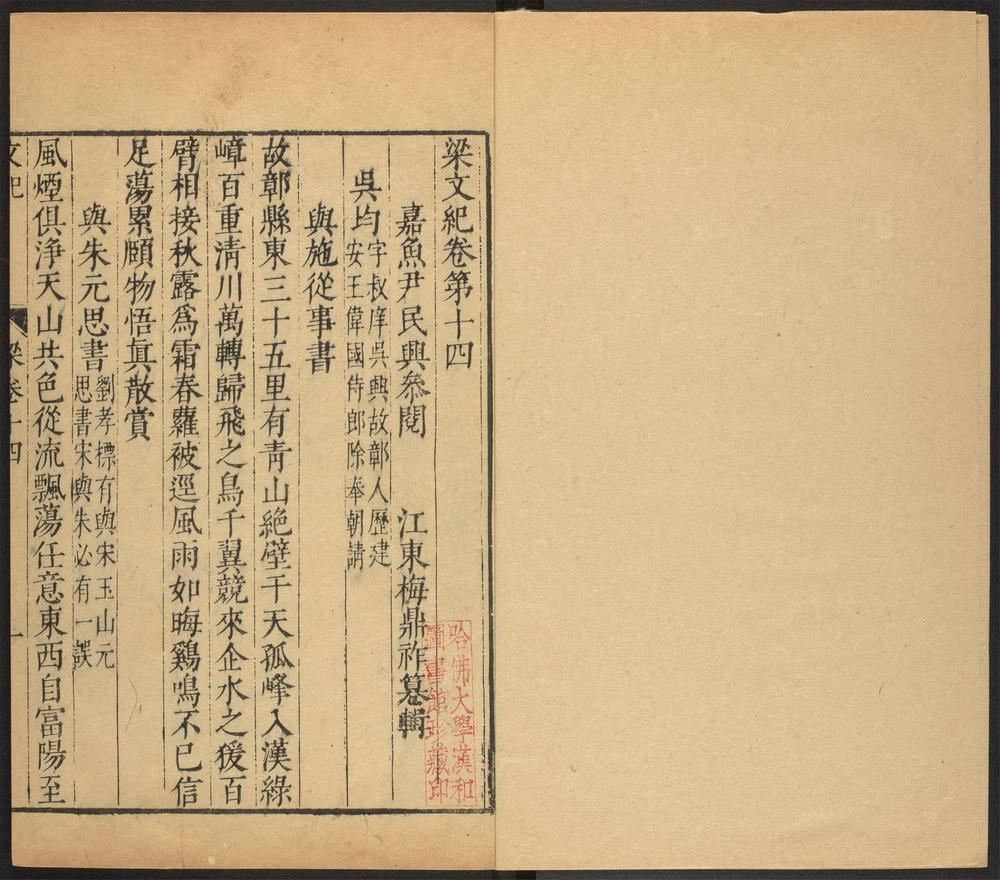 梁文紀卷第十四
嘉魚尹民興叅閱 江東梅鼎祚纂輯
吳均字叔庠吳興故鄣人歷建
安王偉國侍郎除奉朝請
與施從事書
故鄣縣東三十五里有青山絶壁干天孤峰入漢綠
嶂百重清川萬轉歸飛之鳥千翼競來企水之猨百
臂相接秋露爲霜春蘿被逕風雨如晦鷄鳴不已信
足蕩累頤物悟眞散賞
與朱元思書劉孝標有與宋玉山元
思書宋與朱必有一誤
風煙俱淨天山共色從流飄蕩任意東西自富陽至
文紀 梁卷十四 一
哈佛大學漢和
圖書館珍藏印